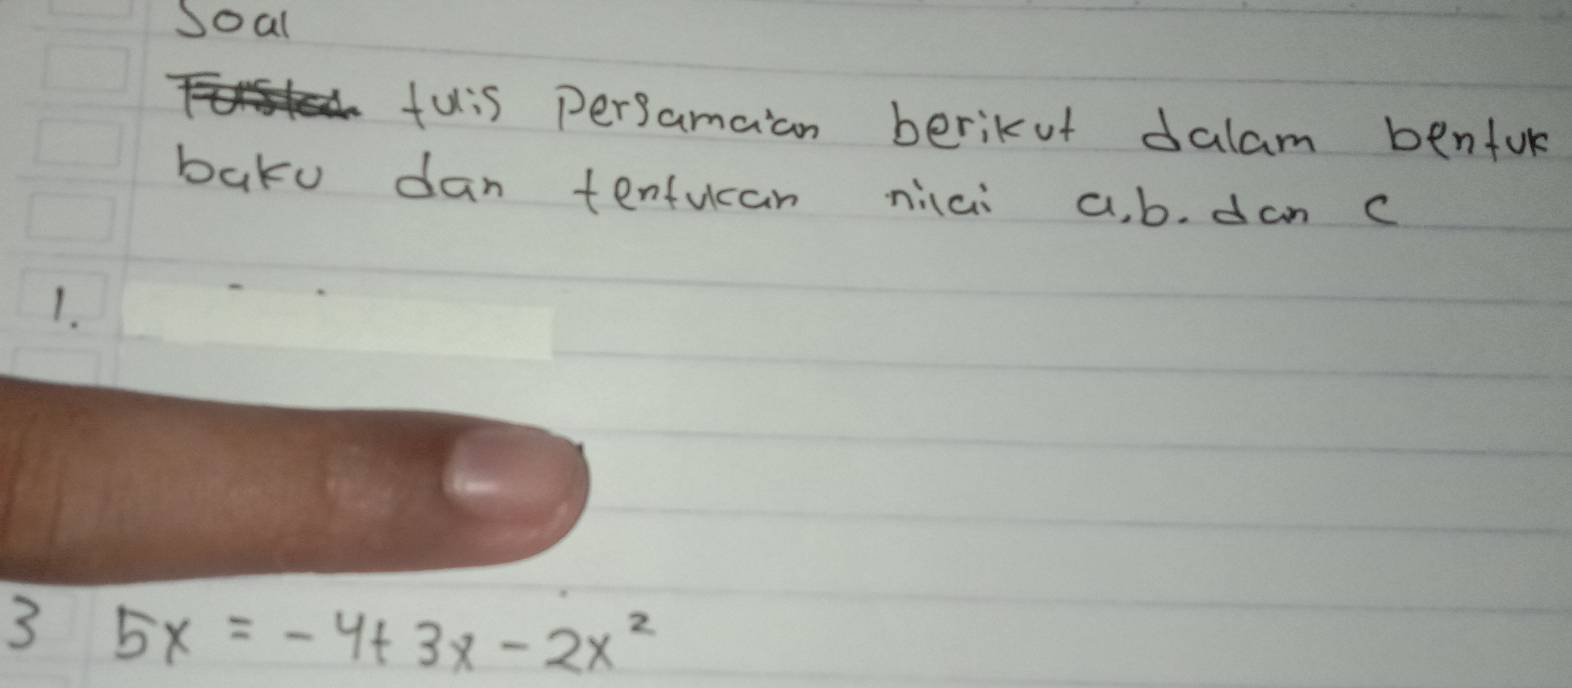 Soal
tulis persamaan berikut dalam bentuk
baku dan tentukan nilai a.b. dan c
1.
3 5x = - 4 + 3x - 2x²